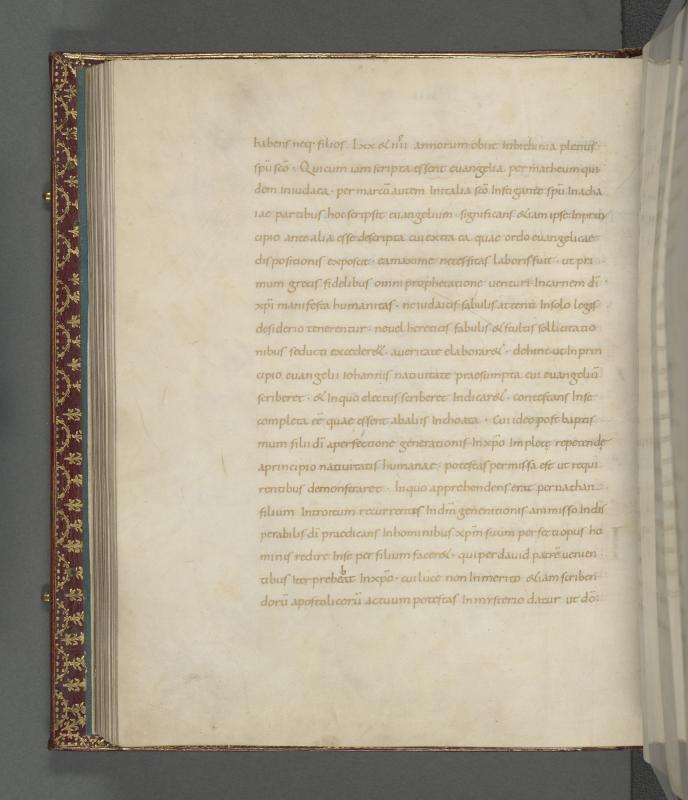 habens neq· filios. Lxx & iiii annorum obiit inbithinia plenus
spū scō · Qui cum iam scripta essent euangelia per matheum qui
dem iniudaea · per marcū autem Initalia scō Instigante spū Inacha
iae partibus hoc scripsit euangelium · significans &iam ipse Inprin
cipio ante alia esse descripta cui extra ea quae ordo euangelicae
dispositionis exposcit · eamaxime necessitas laboris fuit · ut pri
mum grecis fidelibus omni prophetatione uenturi Incarnem dī ·
xp̄i manifesta humanitas · ne iudaicis fabulis attenti Insolo legis
desiderio tenerentur · neuel hereticis fabulis & stultis sollicitatio
nibus seducti exceder& · aueritate elaborar& · dehinc ut Inprin
cipio euangelii iohannis natiuitate praesumpta cui euangeliū
scriberet · & Inquo electus scriberet Indicar& · contestans Inse
completa eē quae essent abaliis Inchoata · Cui ideo post baptis
mum filii dī aperfectione generationis Inxp̄o Implete repetende
aprincipio natiuitatis humanae · potestas permissa est ut requi
rentibus demonstraret · Inquo apprehendens erat per nathan
filium Introitum recurrentis Indm̄ generationis ammisso Indis
perabilis dī praedicans Inhominibus xp̄m suum perfecti opus ho
minis redire Inse per filium facer& · qui per dauid patrē uenien
tibus iter prebebat Inxp̄o · cui luce non Inmerito &iam scriben
dorū apostolicorū actuum potestas Inmysterio datur ut dō